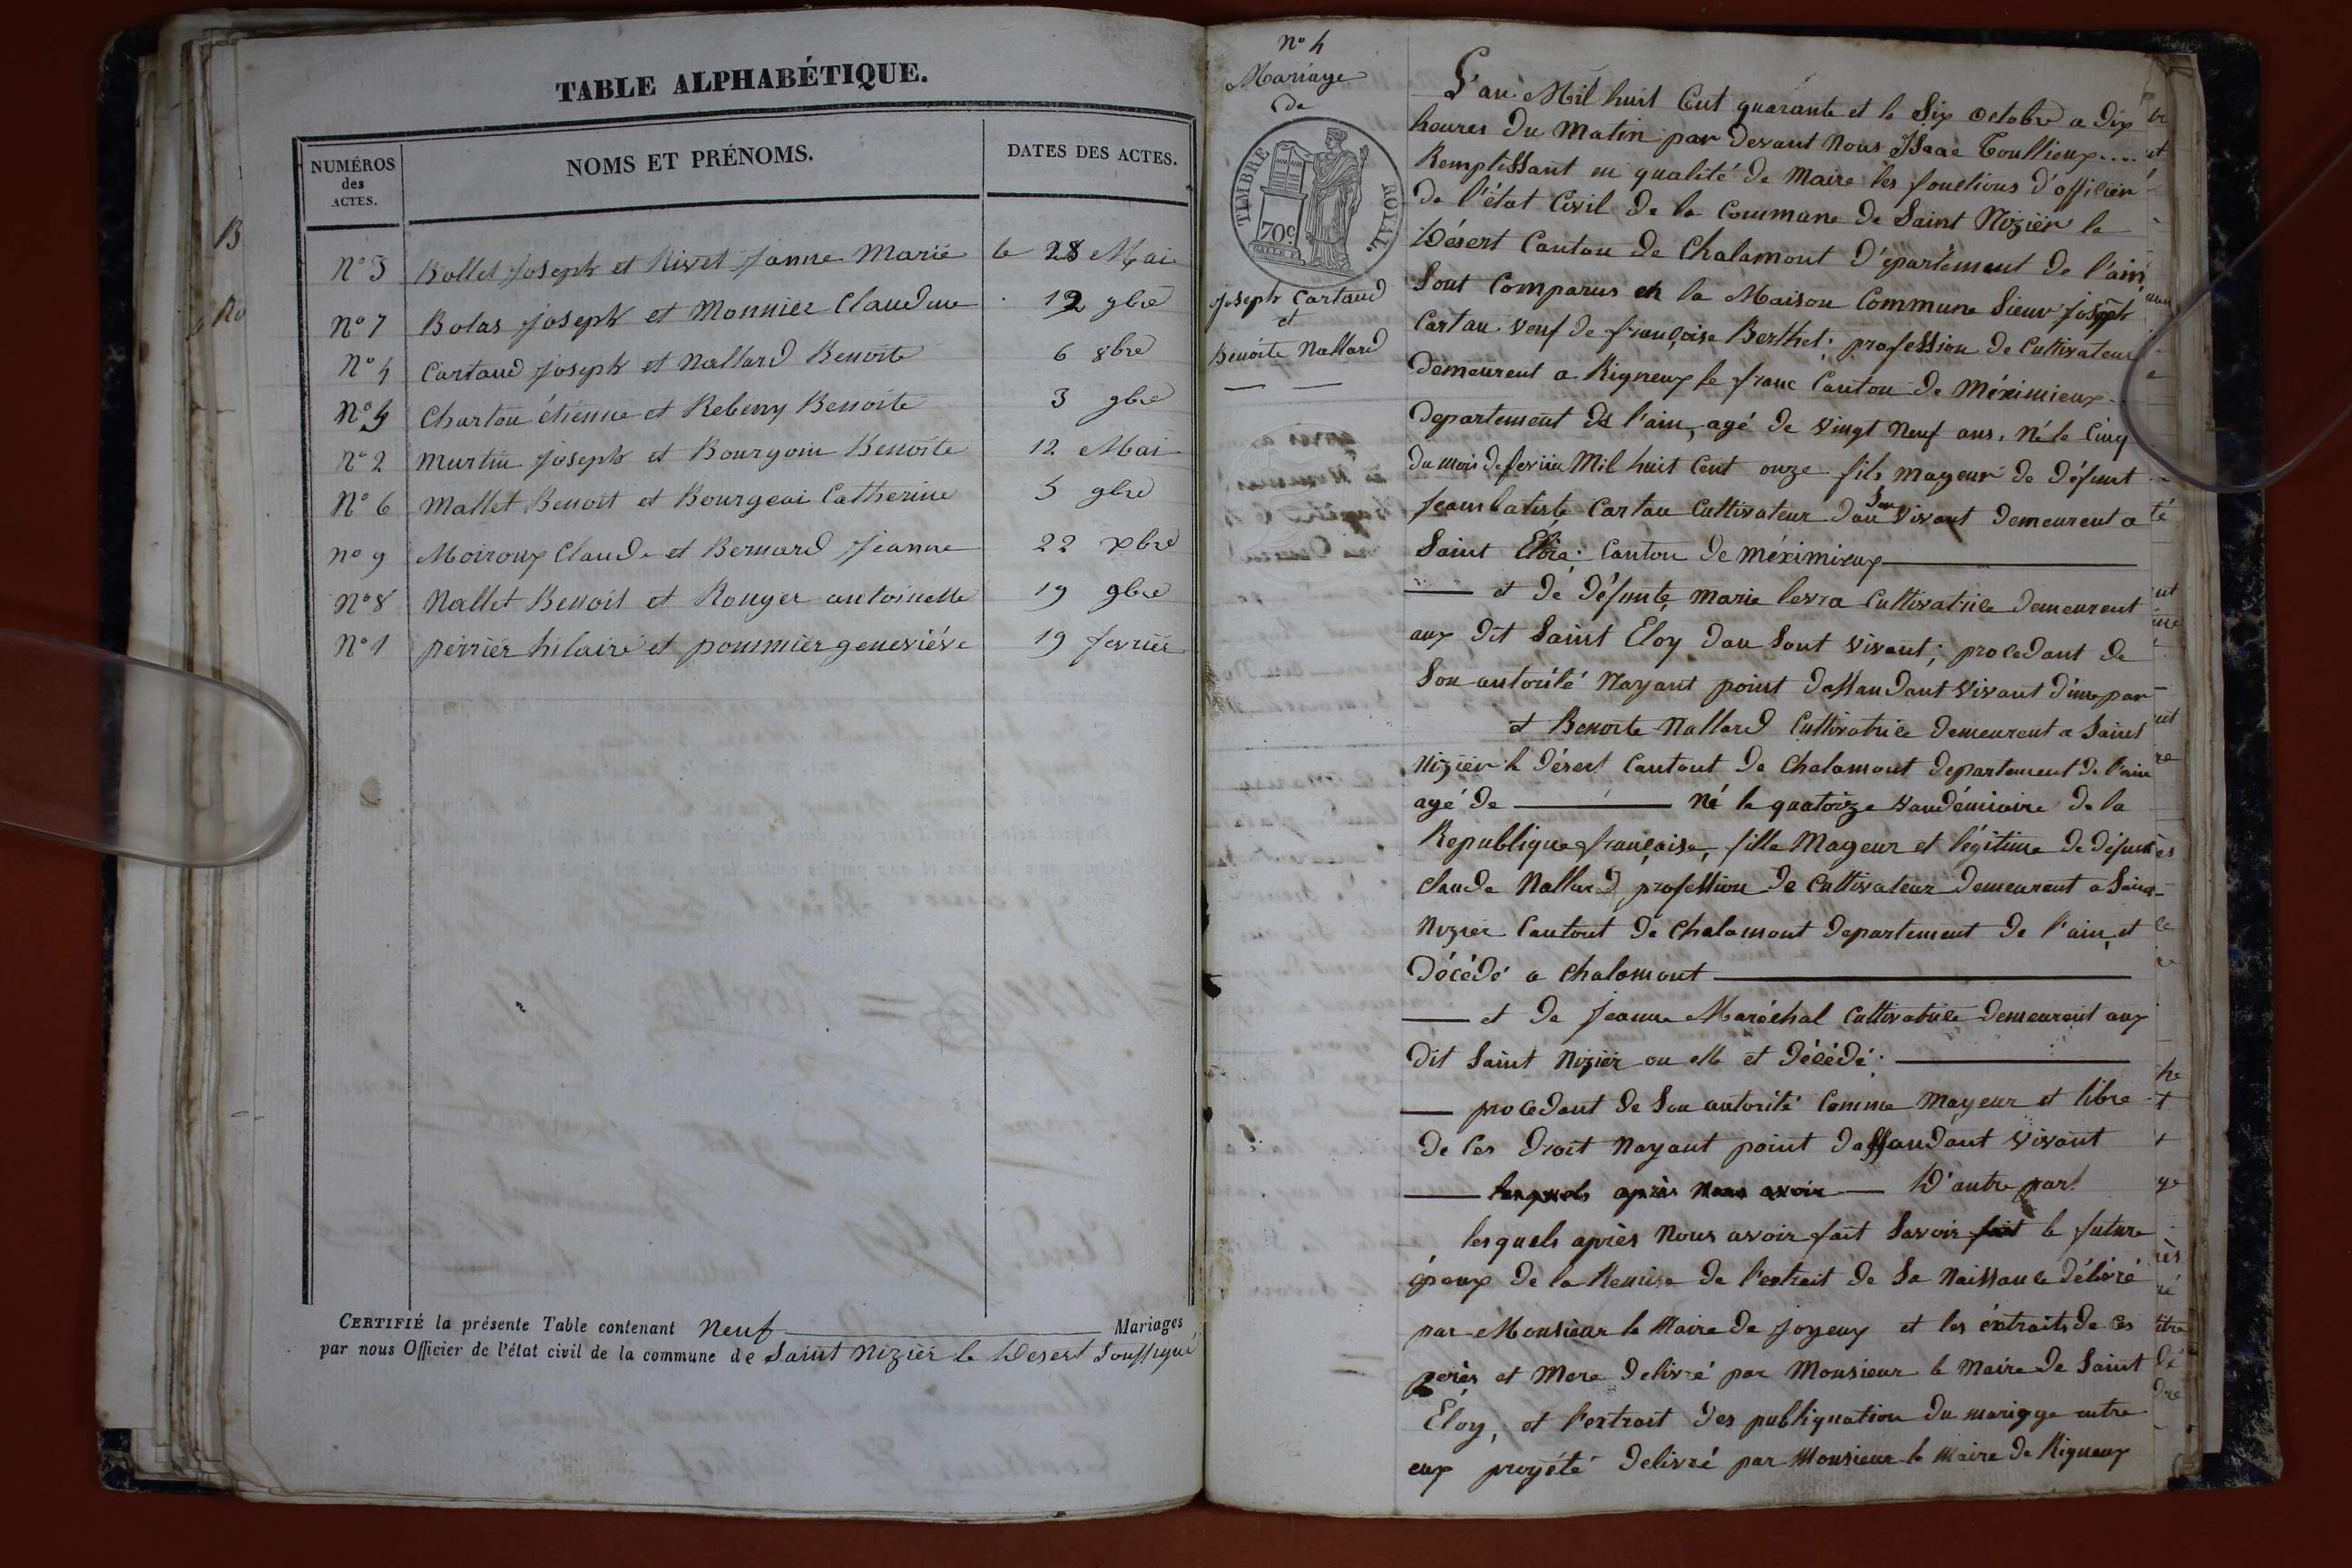 TABLE ALPHABÉTIQUE.
NUMÉROS des ACTES.
NOMS ET PRÉNOMS.
DATES DES ACTES.
B
Ro
n° 3 Bollet Joseph et Rivet Janne Marie le 28 Mai
n° 7 Bolas Joseph et Monnier Claudine 12 9bre
n° 4 Cartaud Joseph et Nallard Benoite 6 8bre
n° 5 Charton étienne et Rebeny Benoite 3 9bre
n° 2 Murtin Joseph et Bourgoin Benoite 12 Mai
n° 6 Mallet Benoit et Bourgeai Catherine 5 9bre
n° 9 Moiroux Claude et Bernard Jeanne 22 xbre
n° 8 Nallet Benoit et Rouyer antoinette 19 9bre
n° 1 périer hilaire et pommier geneviéve 19 fevrier
CERTIFIÉ la présente Table contenant neuf Mariages
par nous Officier de l'état civil de la commune de Saint Nizier le Desert Soussigné
n° 4
Mariage
de
TIMBRE ROYAL.
70c
Joseph Cartaud
et
Benoite Nallard
L'an Mil huit Cent quarante et le Six Octobre a Dix
heures du Matin par devant Nous Isaac Toullieux....
Remplissant en qualité de Maire les fonctions d'officier
de l'état Civil de la Commune de Saint Nizier le
Désert Canton de Chalamont Département de l'ain,
Sont Comparus en la Maison Commune Sieur Joseph
Cartau veuf de françoise Berthet; profession de Cultivateur
demeurent a Rigneux le franc Canton de Méximieux.
departement de l'ain, agé de vingt neuf ans. Né le Cinq
du mois de fevrier Mil huit Cent onze fils mageur de défunt
Jean batiste Cartau Cultivateur dau Son Vivant demeurent a
Saint Éloie; Canton de méximieux
et de défunte marie levra Cultivatrice demeurent
aux dit Saint Eloy dau Sont vivant; procedant de
Son autorité Nayant point dassandant vivant d'une par
et Benoite Nallard Cultivatrice demeurent a Saint
Nizier le désert Cantont de Chalamont departement de l'ain
agé de né le quatorze vandémiaire de la
Republique française, fille Mageur et légitime de défunt
claude Nallard profession de Cultivateur demeurent a Saint
Nizier Cantont de Chalamont departement de l'ain, et
décédé a chalamont
et de Jeanne Maréchal Cultivatrice demeurent aux
dit Saint Nizier ou elle et décédé;
procedant de Son autorité Comme mageur et libre
de Ces droit Nayant point dassandant vivant
lesquels après nous avoir D'autre part
lesquels après Nous avoir fait Savoir fait le future
époux de la Remise de l'extrait de Sa Naissance délivré
par Monsieur le Maire de Joyeux et les éxtraits de Ces
pères et Mere delivré par Monsieur le Maire de Saint
Éloy, et l'extrait des publiquation du mariage entre
eux proyété delivré par Monsieur le Maire de Rigneux